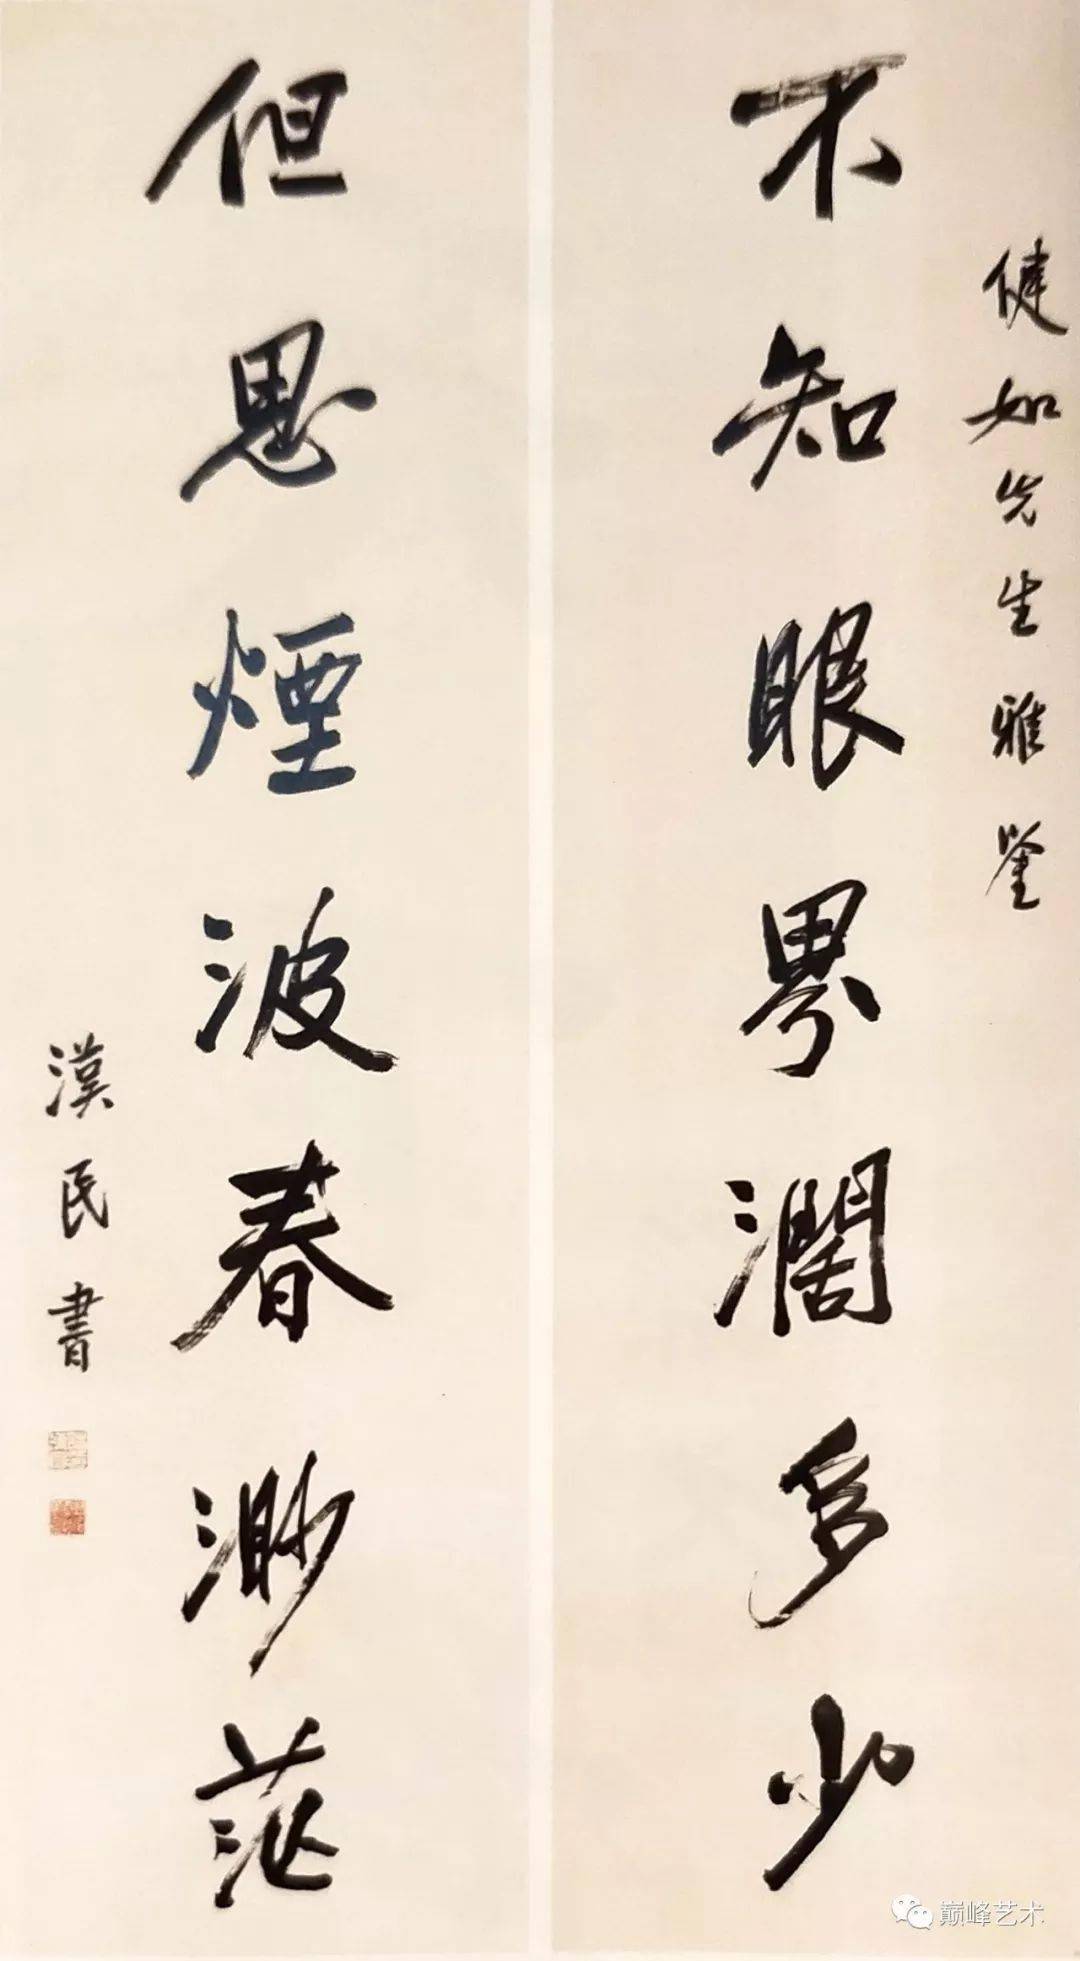 健如先生雅鉴
不知眼界濶多少
但思煙波春渺茫
漢民書
巅峰艺术